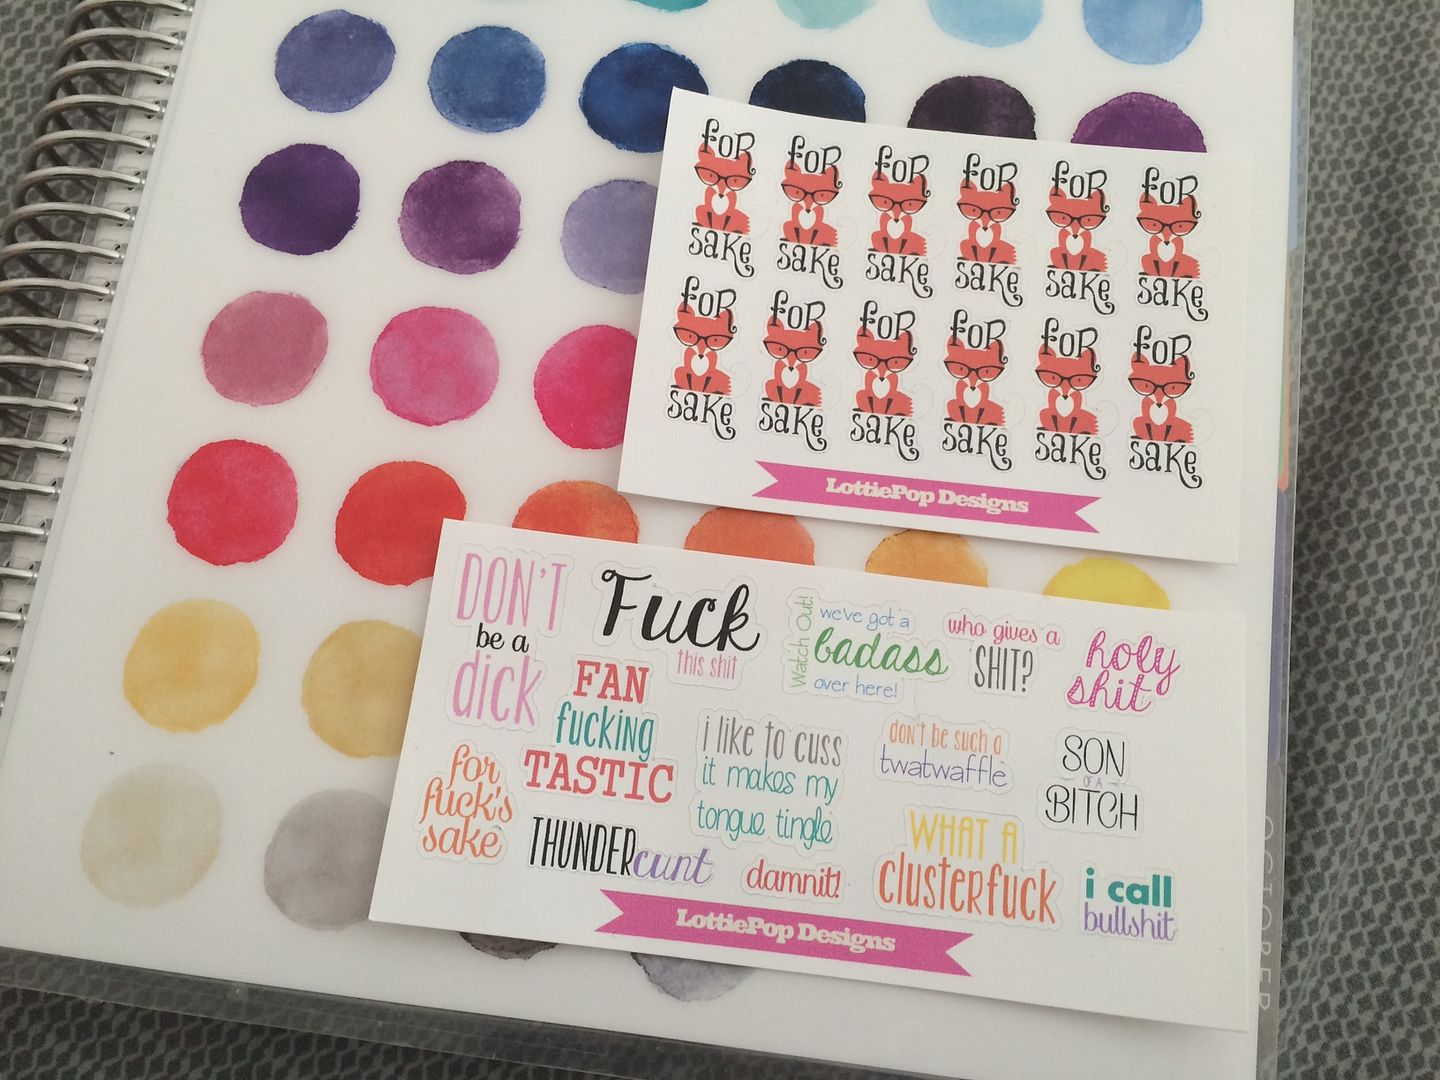 FOR FOR FOR FOR FOR FOR
SAKE SAKE SAKE SAKE SAKE SAKE
FOR FOR FOR FOR FOR FOR
SAKE SAKE SAKE SAKE SAKE SAKE
LottiePop Designs
DON'T
be a
dick
Fuck
this shit
Watch Out!
we've got a
badass
over here!
who gives a
SHIT?
holy
shit
FAN
fucking
TASTIC
i like to cuss
it makes my
tongue tingle
don't be such a
twatwaffle
SON
OF A
BITCH
for
fuck's
sake
THUNDERcunt
damnit!
WHAT A
clusterfuck
i call
bullshit
LottiePop Designs
OCTOBER